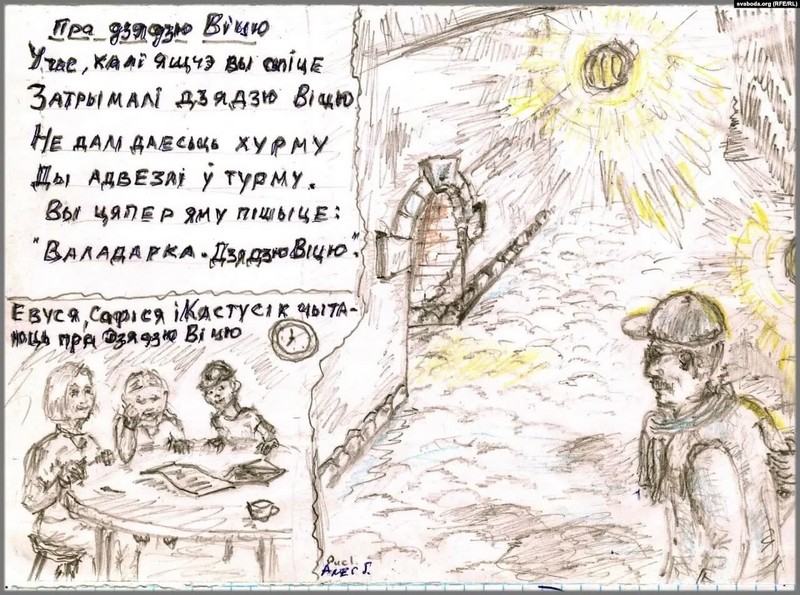 svaboda.org (RFE/RL)
Пра дзядзю Віцю
У час, калі яшчэ вы спіце
Затрымалі дзядзю Віцю
Не далі даесьць хурму
Ды адвезлі ў турму.
Вы цяпер яму пішыце:
"Валадарка - Дзядзю Віцю".
Евуся, Сафіся і Кастусік чыта-
юць пра дзядзю Віцю
Рис.
Алег Г.